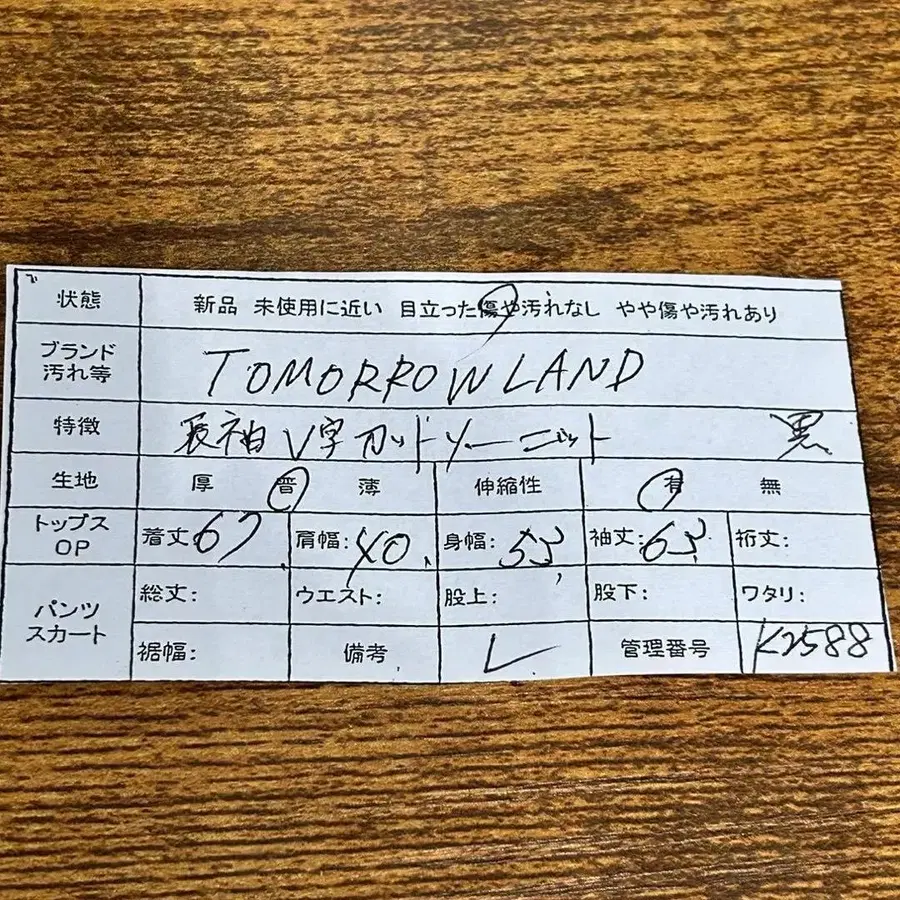 状態 新品 未使用に近い 目立った傷や汚れなし やや傷や汚れあり
ブランド
汚れ等 TOMORROWLAND
特徴 長袖 V字カットソー ニット 黒
生地 厚 普 薄 伸縮性 有 無
トップス
OP 着丈 67 肩幅: 40 身幅: 53 袖丈: 63 裄丈:
パンツ
スカート 総丈: ウエスト: 股上: 股下: ワタリ:
裾幅: 備考 L 管理番号 K2588